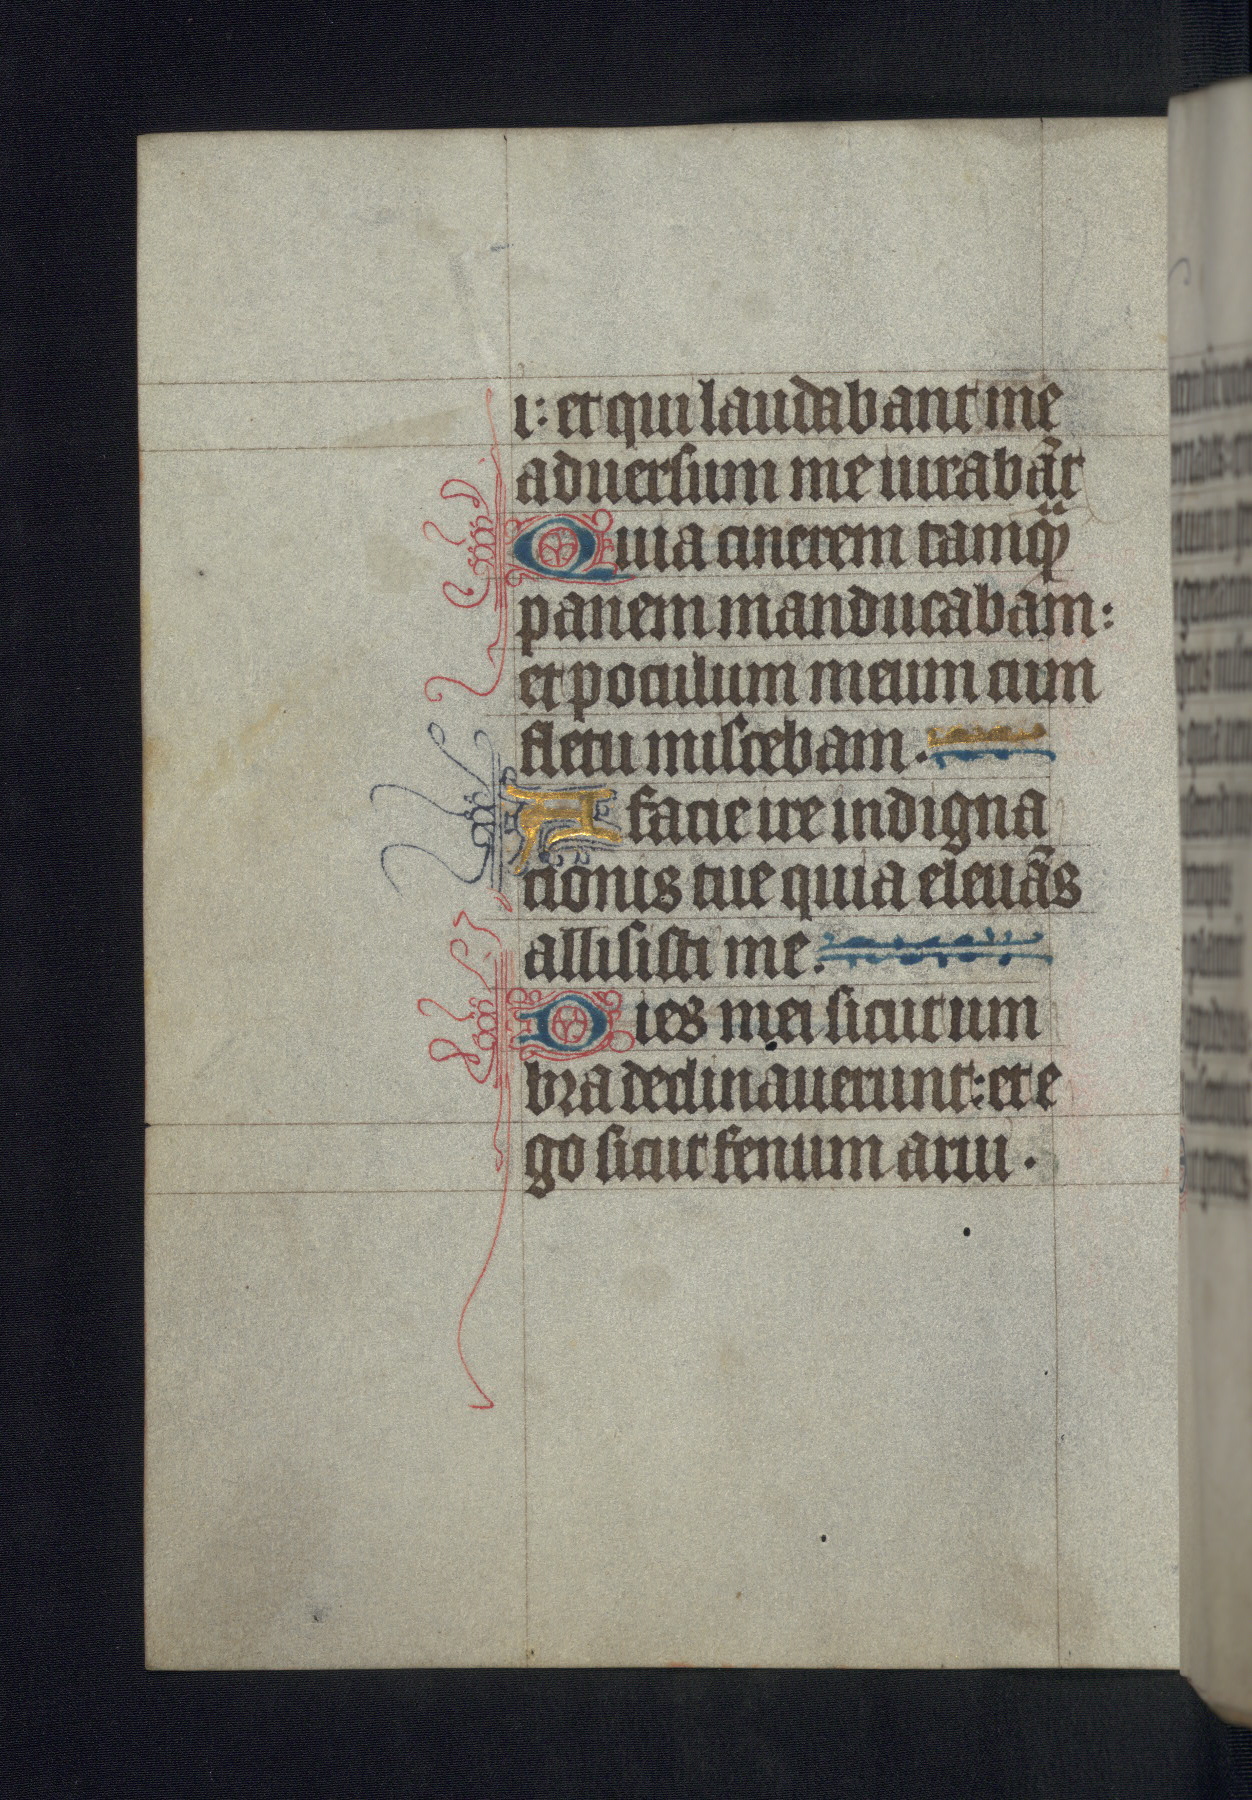 i: et qui laudabant me
aduersum me iurabãt
Quia cinerem tamqͣȝ
panem manducabam:
et poculum meum cum
fletu miscebam.
A facie ire indigna
cionis tue quia eleuãs
allisisti me.
Dies mei sicut um
bra declinauerunt: et e
go sicut fenum arui.